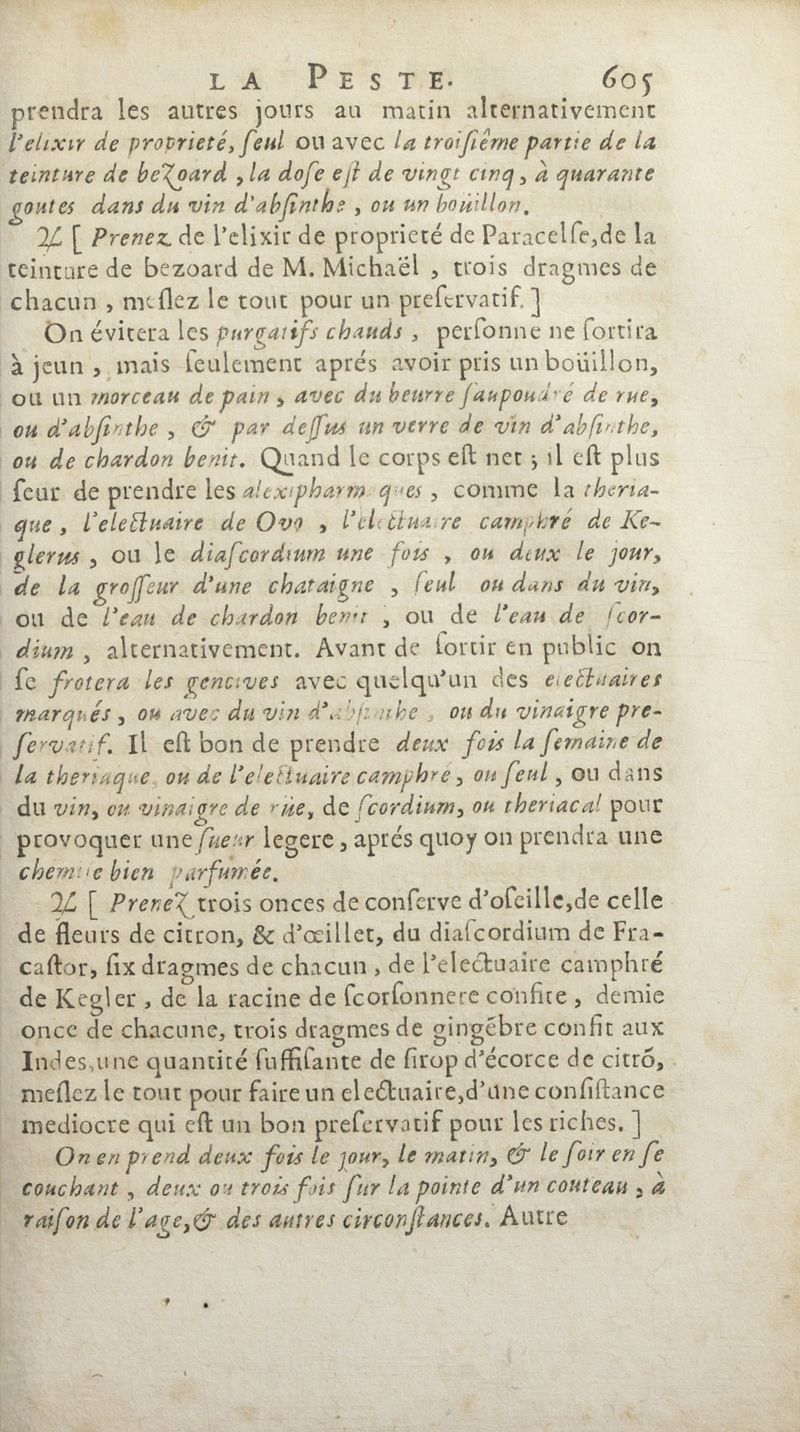 LA PESTE. 605
prendra les autres jours au matin alternativement
l'elixir de proprieté, ſeul ou avec la troiſiéme partie de la
teinture de bezoard , la doſe eſt de vingt cinq , à quarante
goutes dans du vin d'abſinthe , ou un boüillon.
♃ [ Prenez de l'elixir de proprieté de Paracelſe,de la
teinture de bezoard de M. Michaël , trois dragmes de
chacun , meſlez le tout pour un preſervatif. ]
On évitera les purgatifs chauds , perſonne ne ſortira
à jeun , mais ſeulement aprés avoir pris un boüillon,
ou un morceau de pain , avec du beurre ſaupoudré de rue,
ou d'abſinthe , & par deſſus un verre de vin d'abſinthe,
ou de chardon benit. Quand le corps eſt net ; il eſt plus
ſeur de prendre les alexipharmaques , comme la theria-
que , l'electuaire de Ovo , l'electuaire camphré de Ke-
glerus , ou le diaſcordium une fois , ou deux le jour,
de la groſſeur d'une chataigne , ſeul ou dans du vin,
ou de l'eau de chardon benit , ou de l'eau de ſcor-
dium , alternativement. Avant de ſortir en public on
ſe frotera les gencives avec quelqu'un des electuaires
marqués , ou avec du vin d'abſinthe , ou du vinaigre pre-
ſervatif. Il eſt bon de prendre deux fois la ſemaine de
la theriaque, ou de l'electuaire camphré, ou ſeul , ou dans
du vin, ou vinaigre de rüe, de ſcordium, ou theriacal pour
provoquer une ſueur legere , aprés quoy on prendra une
chemiſe bien parfumée.
♃ [ Prenez trois onces de conſerve d'oſeille,de celle
de fleurs de citron, & d'œillet, du diaſcordium de Fra-
caſtor, ſix dragmes de chacun , de l'electuaire camphré
de Kegler , de la racine de ſcorſonnere confite , demie
once de chacune, trois dragmes de gingébre confit aux
Indes,une quantité ſuffiſante de ſirop d'écorce de citrõ,
meſlez le tout pour faire un electuaire,d'une conſiſtance
mediocre qui eſt un bon preſervatif pour les riches. ]
On en prend deux fois le jour, le matin, & le ſoir en ſe
couchant , deux ou trois fois ſur la pointe d'un couteau , à
raiſon de l'age,& des autres circonſtances. Autre